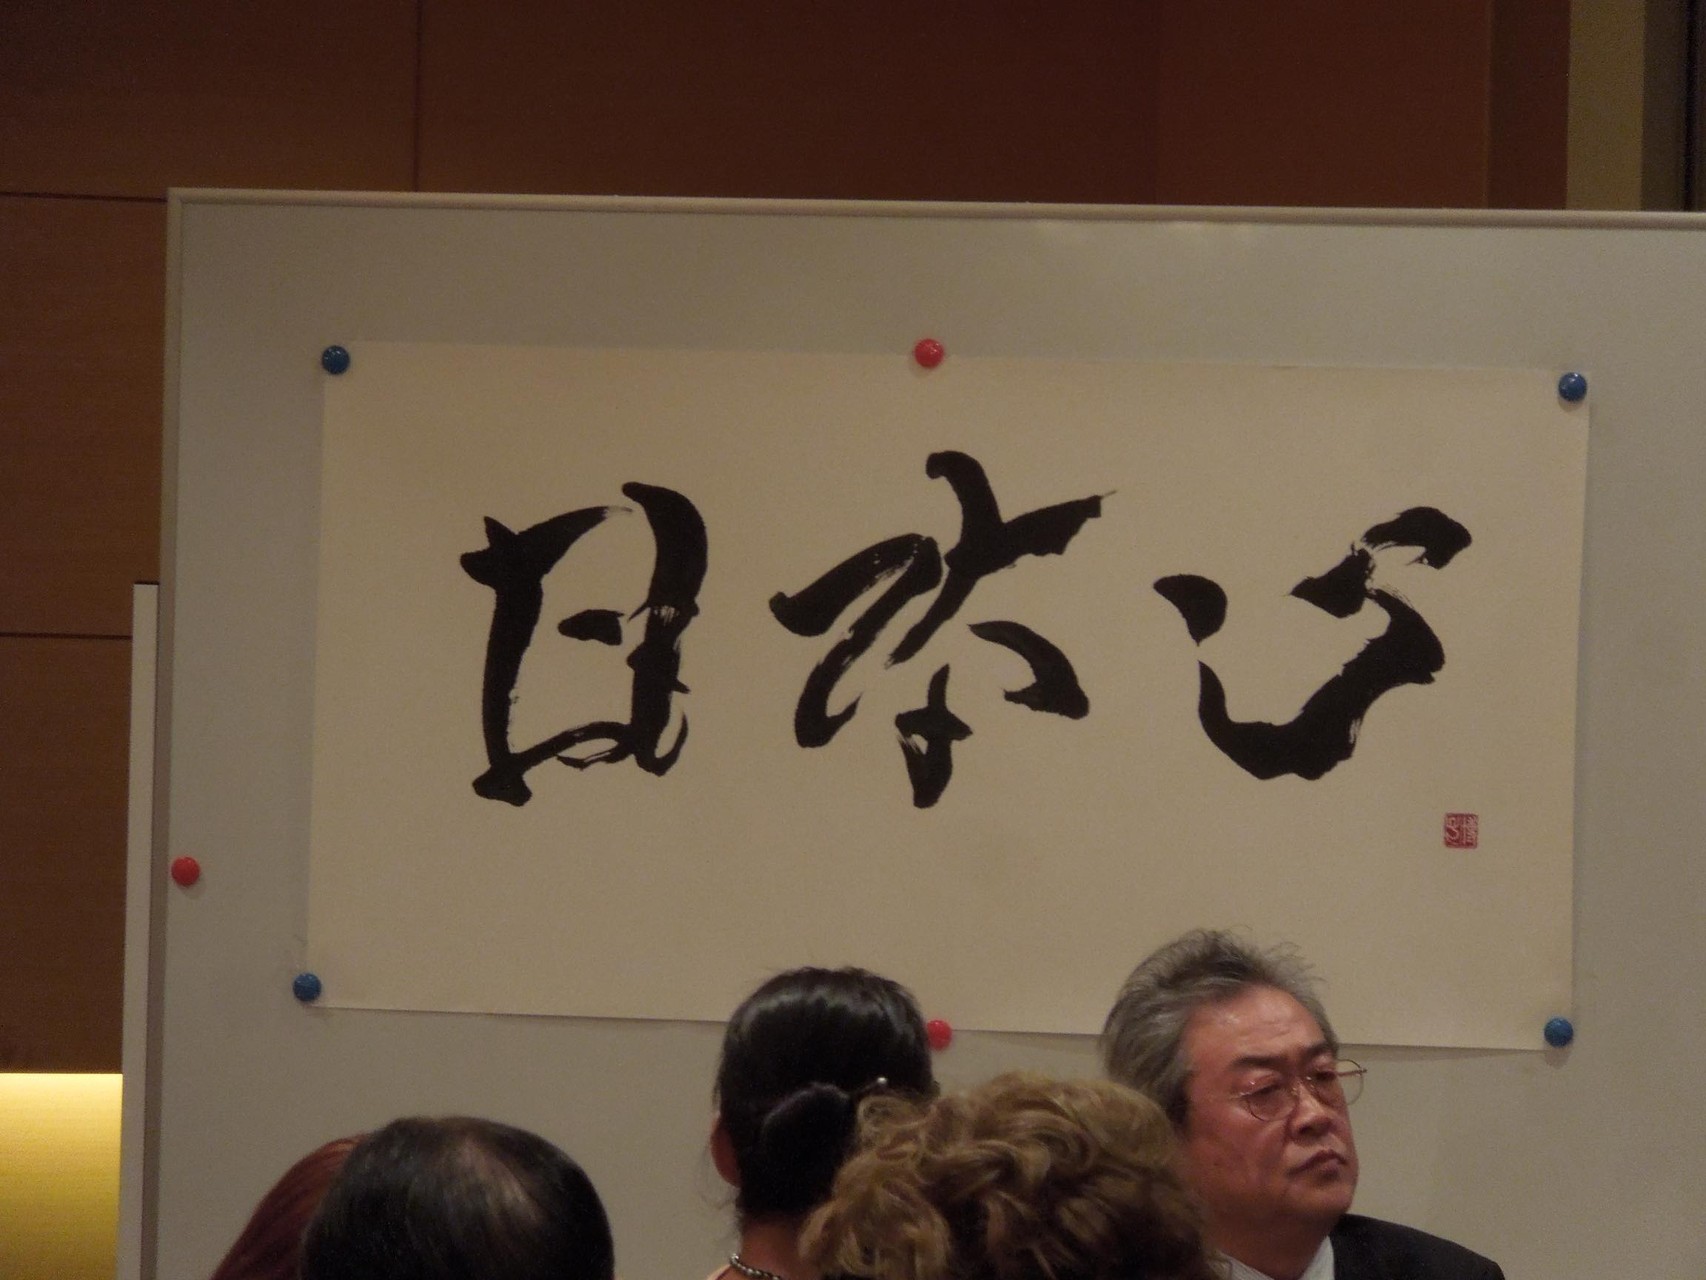 日本心